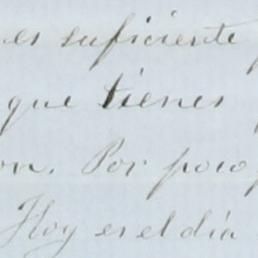 es suficiente
que tienes
on. Por poco
Hoy es el día